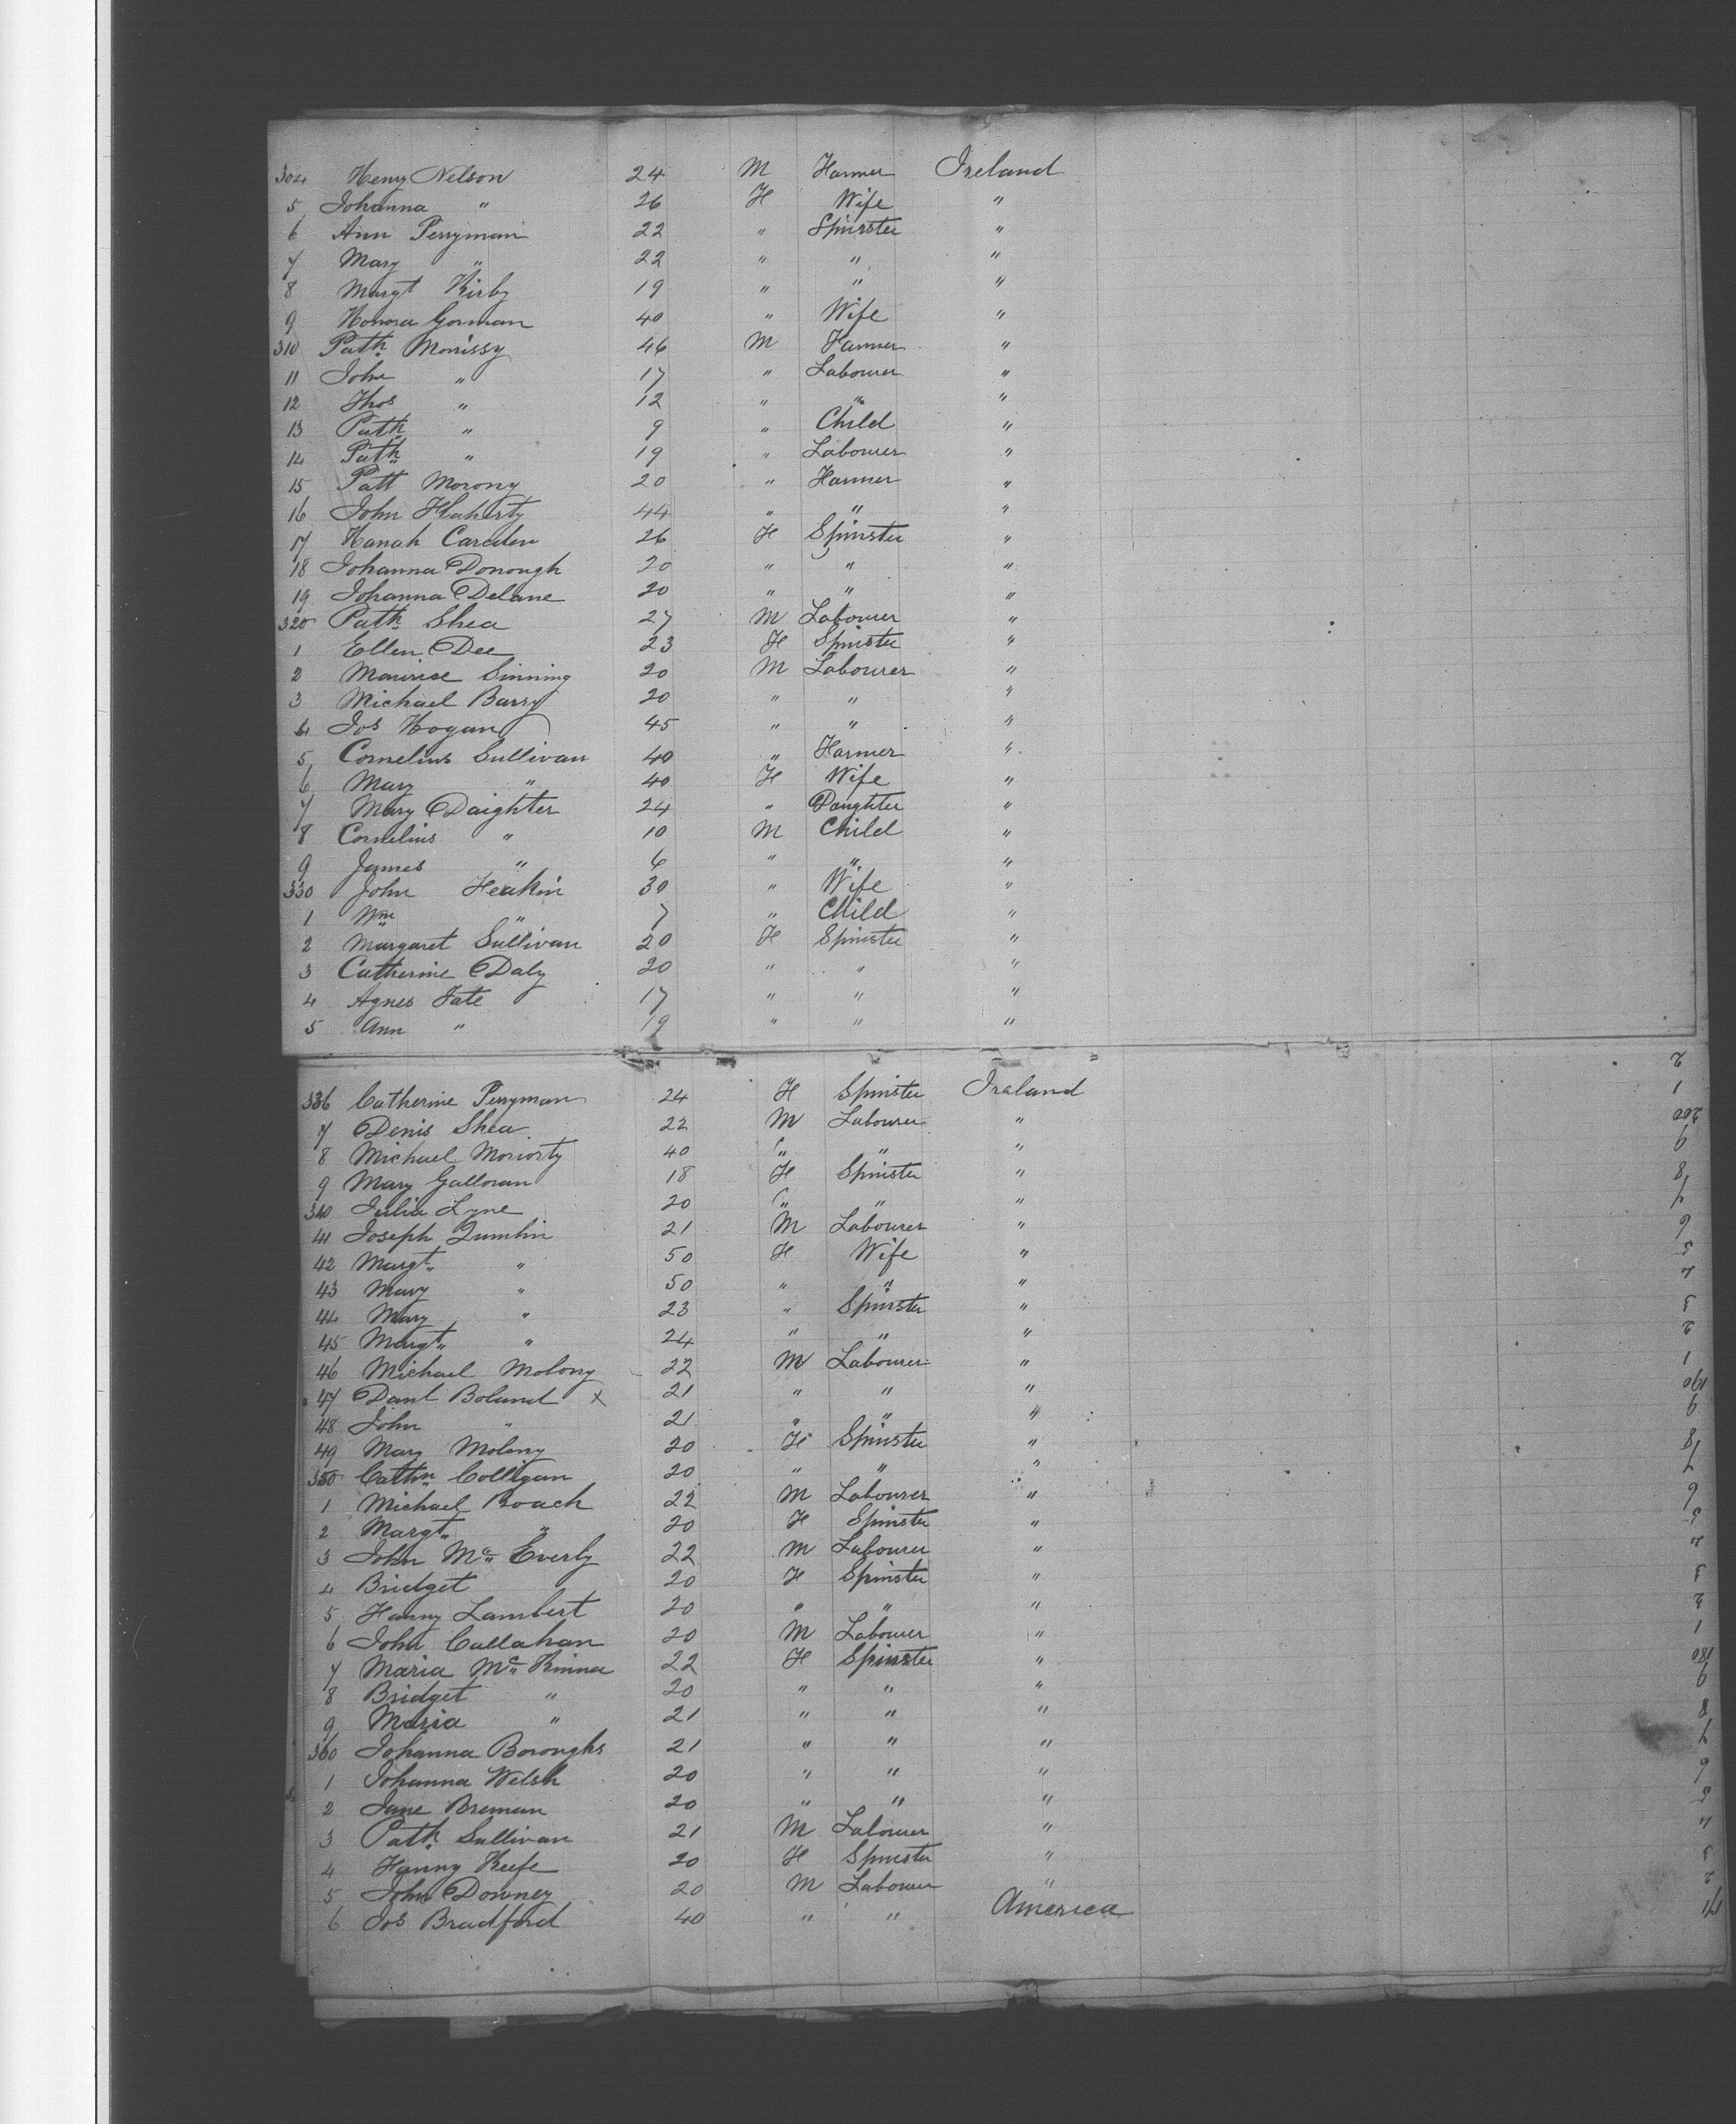 304 Henry Nelson 24 M Farmer Ireland
5 Johanna " 26 F Wife "
6 Ann Perryman 22 " Spinster "
7 Mary " 22 " " "
8 Margt Kirby 19 " " "
9 Honora Gorman 40 " Wife "
310 Patk Morrissy 46 M Farmer "
11 John " 17 " Labourer "
12 Thos " 12 " " "
13 Patk " 9 " Child "
14 Patk " 19 " Labourer "
15 Patt Morony 20 " Farmer "
16 John Flaherty 44 " " "
17 Hanah Carden 26 F Spinster "
18 Johanna Donough 20 " " "
19 Johanna Delane 20 " " "
320 Patk Shea 27 M Labourer "
1 Ellen Dee 23 F Spinster "
2 Maurice Sinning 20 M Labourer "
3 Michael Barry 20 " " "
4 Jos Hogan 45 " " "
5 Cornelius Sullivan 40 " Farmer "
6 Mary " 40 F Wife "
7 Mary Daighter 24 " Daughter "
8 Cornelius " 10 M Child "
9 James " 6 " " "
330 John Heakin 30 " Wife "
1 Wm " 7 " Child "
2 Margaret Sullivan 20 F Spinster "
3 Catherine Daly 20 " " "
4 Agnes Tate 17 " " "
5 Ann " 19 " " "
336 Catherine Perryman 24 F Spinster Ireland
7 Denis Shea 22 M Labourer "
8 Michael Moriorty 40 " " "
9 Mary Galloran 18 F Spinster "
340 Julia Lyne 20 " " "
41 Joseph Qumlin 21 M Labourer "
42 Margt " 50 F Wife "
43 Mary " 50 " " "
44 Mary " 23 " Spinster "
45 Margt " 24 " " "
46 Michael Molony 22 M Labourer "
47 Danl Boland x 21 " " "
48 John " 21 " " "
49 Mary Molony 20 F Spinster "
350 Cathn Colligan 20 " " "
1 Michael Roach 22 M Labourer "
2 Margt " 20 F Spinster "
3 John Mc Everly 22 M Labourer "
4 Bridget 20 F Spinster "
5 Fanny Lambert 20 " " "
6 John Callahan 20 M Labourer "
7 Maria Mc Kinna 22 F Spinster "
8 Bridget " 20 " " "
9 Maria " 21 " " "
360 Johanna Boroughs 21 " " "
1 Johanna Welsh 20 " " "
2 Jane Brennan 20 " " "
3 Patk Sullivan 21 M Labourer "
4 Fanny Keefe 20 F Spinster "
5 John Downey 20 M Labourer "
6 Jos Bradford 40 " " America
2
1
200
9
8
7
6
5
4
3
2
1
190
9
8
7
6
5
4
3
2
1
180
9
8
7
6
5
4
3
2
171